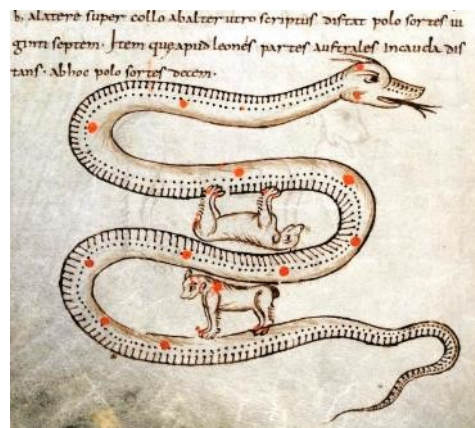 b, alatere super collo abalter utro scriptus distat polo sortes ui
ginti septem. Item que apud leones partes australes incauda dis
tans. abhoc polo sortes decem.